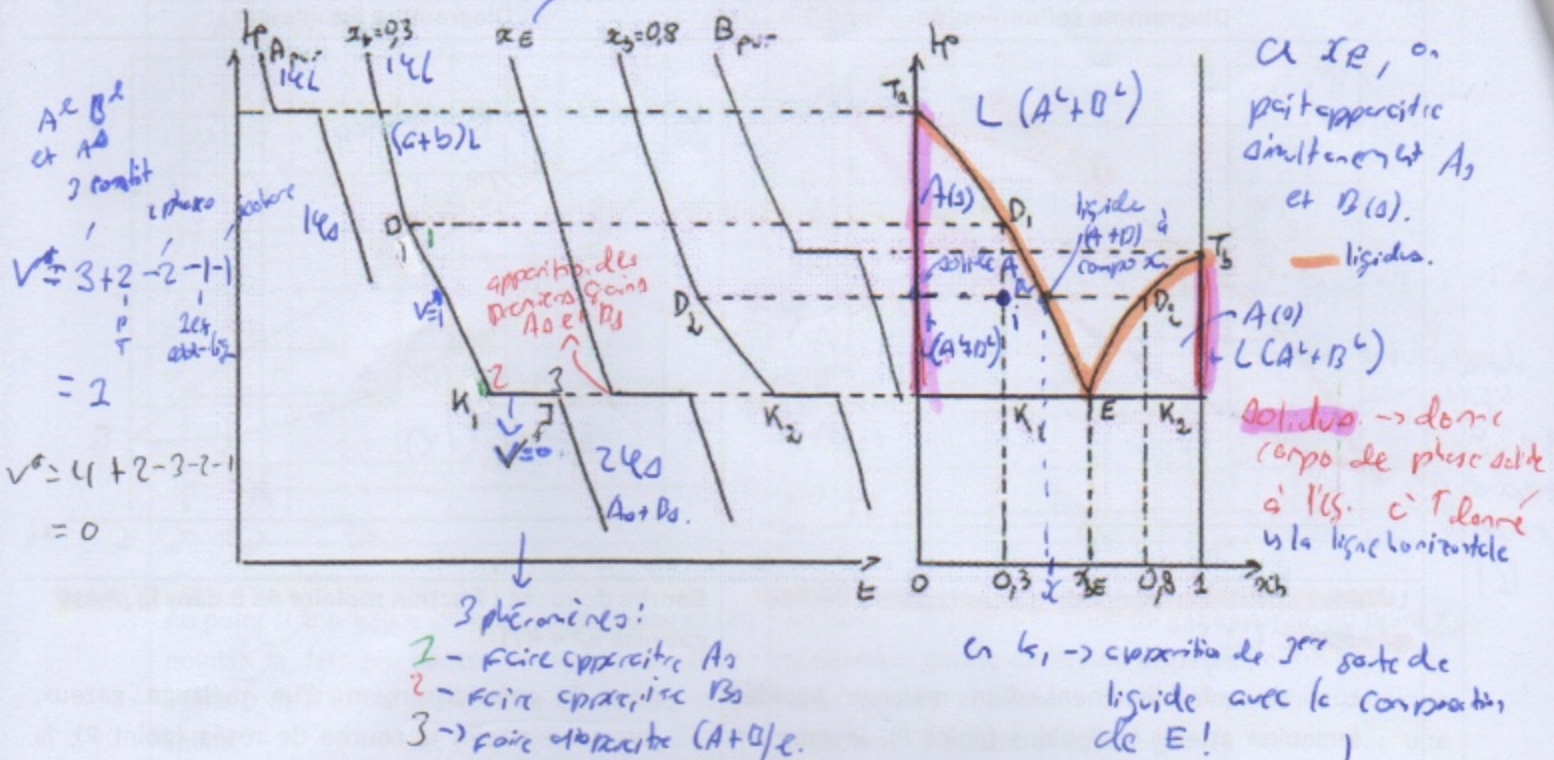 A pur
x_b=0,3
x_E
x_b=0,8
B pur
1φL
1φL
(a+b)L
1φs
A^l B^l
et A^s
3 constit
2 phases
V=3+2-2-1-1
P
T
= 1
V=4+2-3-2-1
= 0
D
1
1
V=1
K1
2
3
J
V=0
2φs
apparition des
premiers grains
As et Bs
D2
K2
t
3 phénomènes:
1 → faire apparaitre As
2 → faire apparaitre Bs
3 → faire apparaitre (A+B)l.
Ta
L (A^L+B^L)
A(s)
D1
liquide
(A+B) à
compo
solide A
i
+
L(A^L+B^L)
D2
Tb
A(s)
+ L(A^L+B^L)
K1
E
K2
0
0,3
xE
0,8
1
a xE, on
fait apparaitre
simultanement As
et B(s).
liquidus.
solidus → donne
compo de phase solide
à l'éq. à T donné
la ligne horizontale
en K1 → apparition de 3eme sorte de
liquide avec la composition
de E !